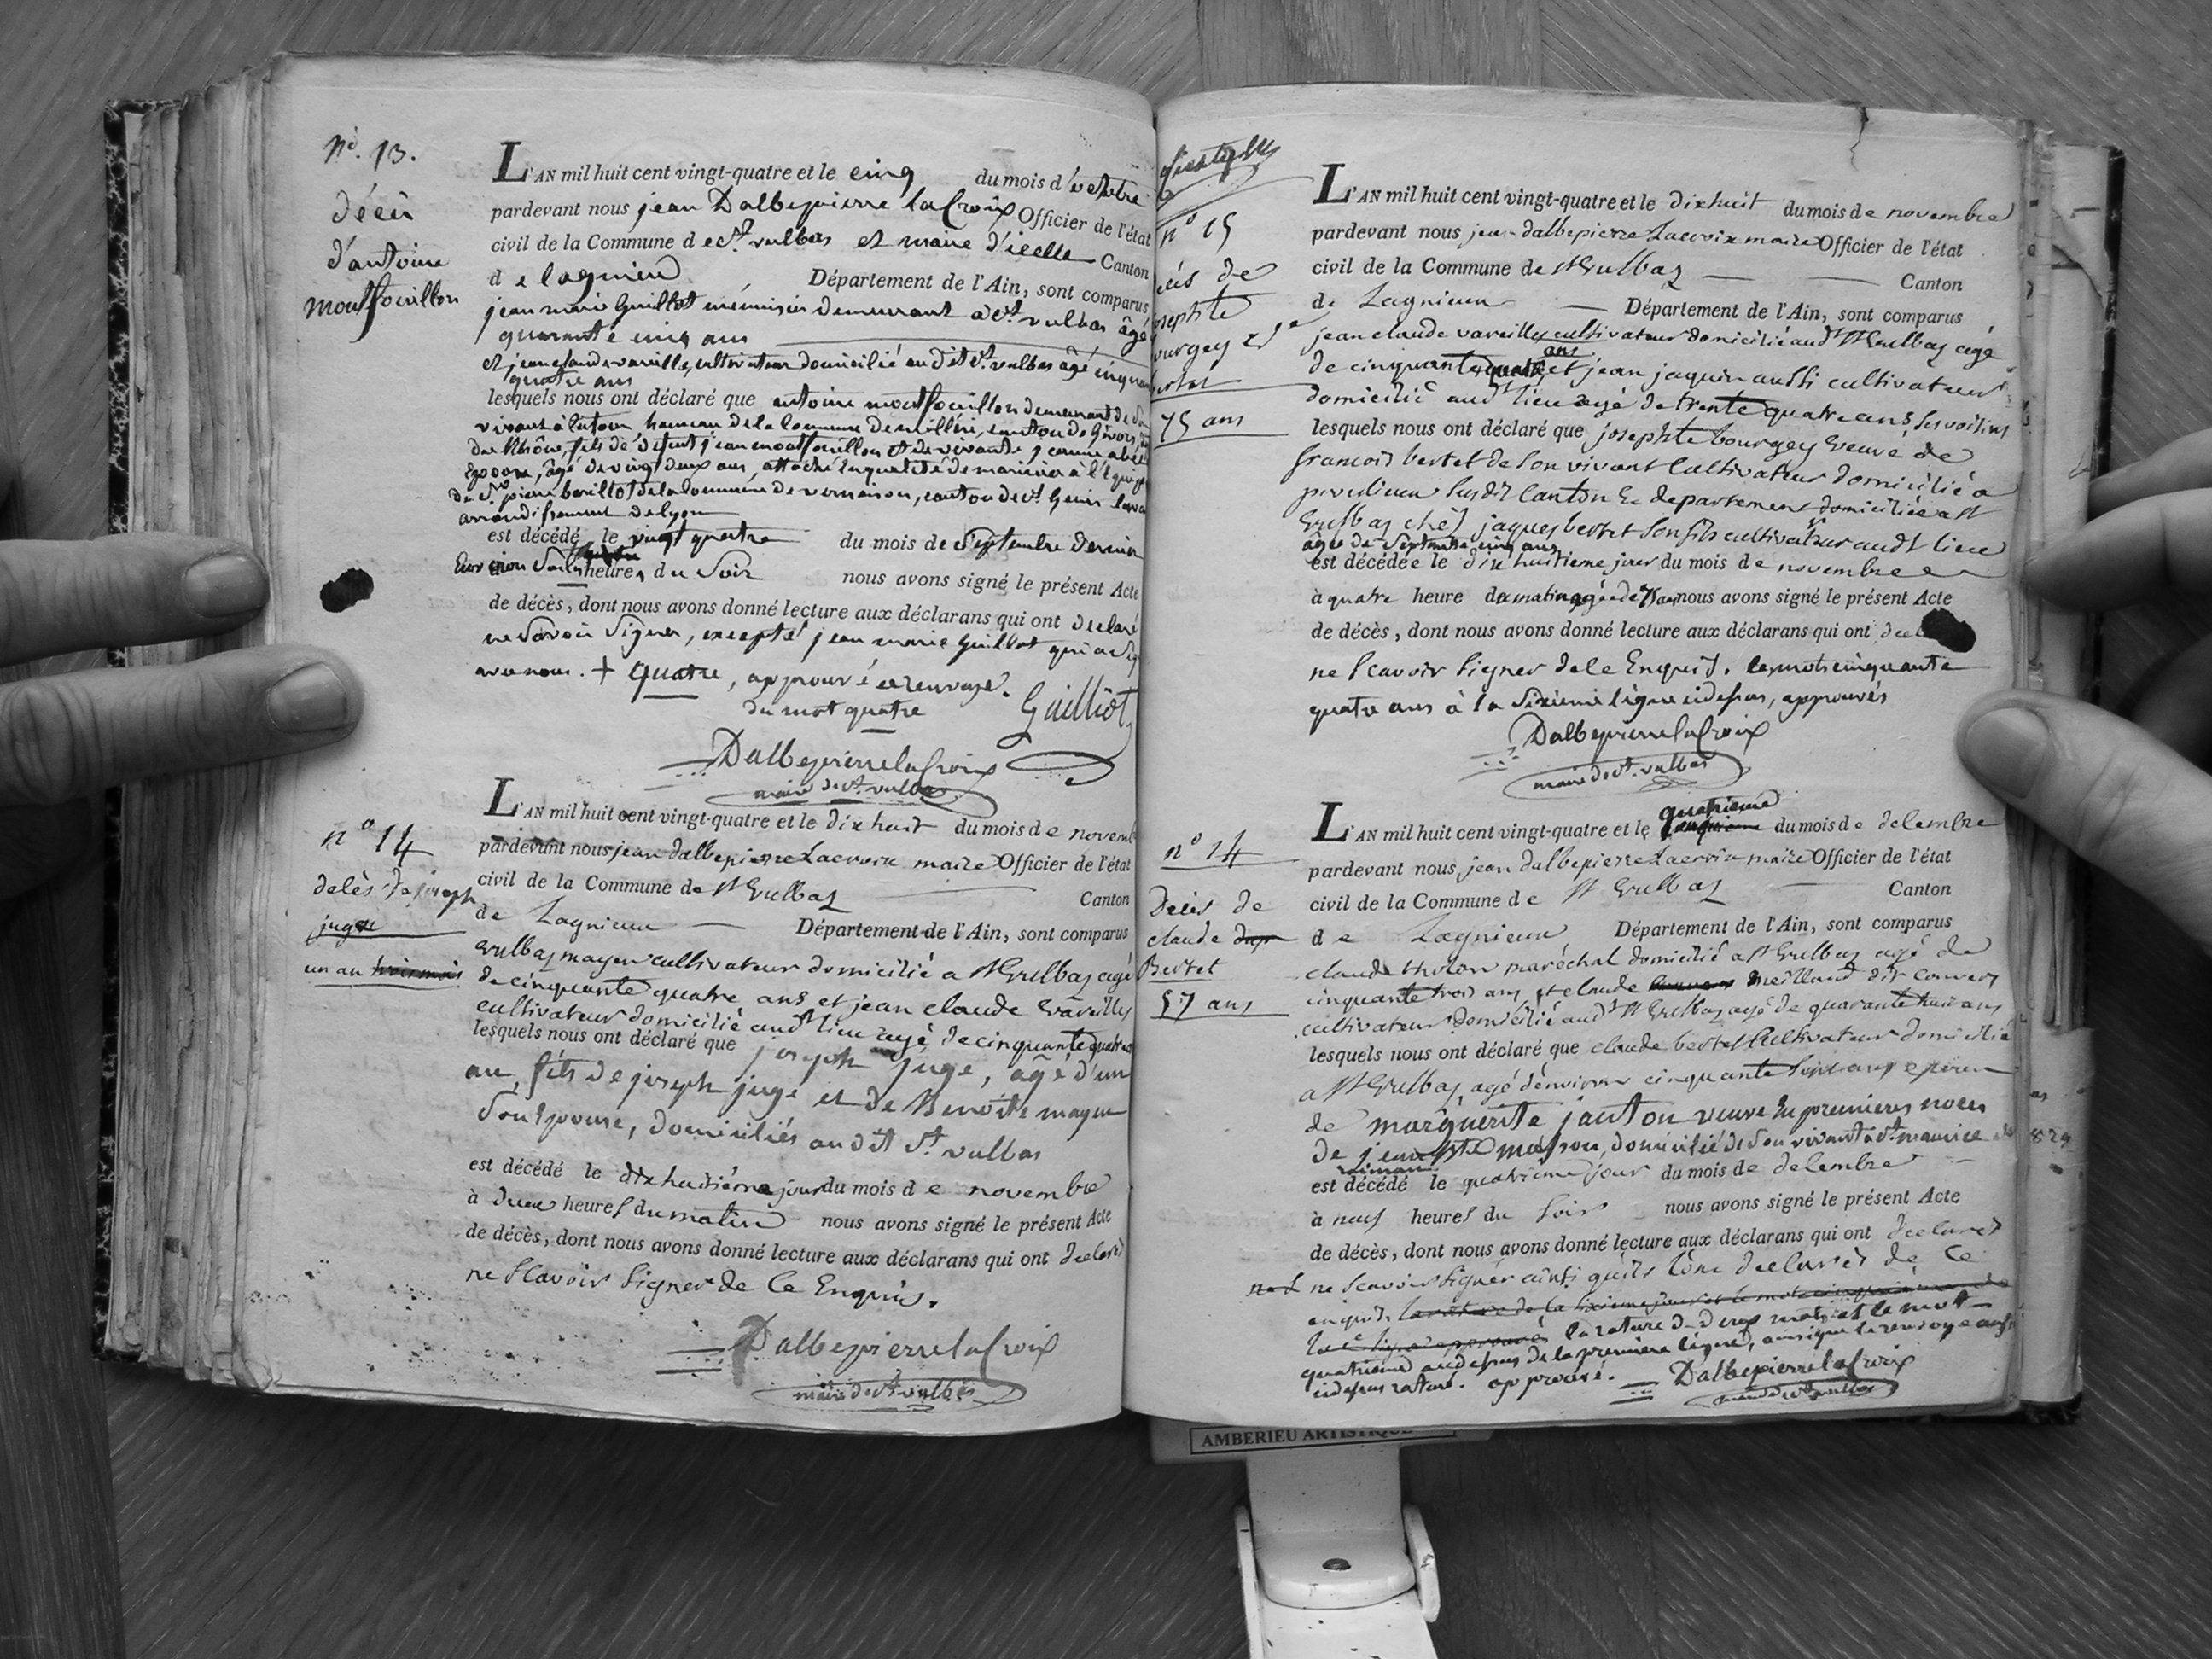 nº. 13.
décès
d'antoine
montfouillon
L'AN mil huit cent vingt-quatre et le cinq du mois d'octobre
pardevant nous jean Dalbepierre laCroix Officier de l'état
civil de la Commune de St. vulbas et maire d'icelle Canton
de lagnieu Département de l'Ain, sont comparus
jean marie Guilliot menuisier demeurant à St. vulbas âgé
quarante cinq ans
et jean claude vareille, cultivateur domicilié au dit St. vulbas âgé cinquan
quatre ans
lesquels nous ont déclaré que antoine montfouillon demeurant de son
vivant à hameau de la Commune de canton de Givors,
du Rhône, fils de défunt jean montfouillon et de vivante jeanne
Epouse, âgé de vingt deux ans, attaché En qualité de marinier à l'équip
du Sr. pierre barillot de la Commune de vernaison, canton de St. Genis laval
arrondissement de lyon
est décédé le vingt quatre du mois de Septembre dernier
Environ heures du Soir nous avons signé le présent Acte
de décès, dont nous avons donné lecture aux déclarans qui ont declaré
ne Savoir Signer, excepté jean marie Guilliot qui a sig
avec nous. + quatre, approuvé le renvoye.
du mot quatre
Guilliot
DalbepierrelaCroix
maire de St. vulbas
nº 14
décès de joseph
juge
un an trois mois
L'AN mil huit cent vingt-quatre et le dix huit du mois de novemb
pardevant nous jean dalbepierre Lacroix maire Officier de l'état
civil de la Commune de St Vulbas Canton
de Lagnieu Département de l'Ain, sont comparus
Vulbas mayeu cultivateur domicilié a St Vulbas agé
de cinquante quatre ans et jean claude Vareilly
cultivateur domicilié aud't lieu agé de cinquante quatre
lesquels nous ont déclaré que joseph juge, âgé d'un
an, fils de joseph juge et de Benoîte mayeu
Son Epouse, domiciliés au dit St. vulbas
est décédé le dix huitième jour du mois de novembre
à deux heures du matin nous avons signé le présent Acte
de décès, dont nous avons donné lecture aux déclarans qui ont declaré
ne Scavoir Signer de Ce Enquis.
DalbepierrelaCroix
maire de St. vulbas
nº 15
cès de
osephte
ourgey ve
bertet
75 ans
L'AN mil huit cent vingt-quatre et le dixhuit du mois de novembre
pardevant nous jean dalbepierre Lacroix maire Officier de l'état
civil de la Commune de St Vulbas Canton
de Lagnieu Département de l'Ain, sont comparus
jean claude vareilly cultivateur domicilié aud't St Vulbas agé
ans
de cinquante quatre et jean jaquin aussi cultivateur
domicilié aud't lieu agé de trente quatre ans Ses voisins
lesquels nous ont déclaré que josephte bourgey Veuve de
francois bertet de Son vivant Cultivateur domicilié a
Susdit Canton Et departement domiciliée a St
Vulbas chés jaques bertet Son fils cultivateur aud't lieu
âgée de Septante cinq ans
est décédée le dix huitieme jour du mois de novembre
à quatre heure du matin agée de 75 ans nous avons signé le présent Acte
de décès, dont nous avons donné lecture aux déclarans qui ont decl
ne Scavoir Signer de Ce Enquis. les mots cinquante
quatre ans à la Sixième ligne cidessus, approuvés
DalbepierrelaCroix
maire de St. vulbas
nº 14
Décès de
claude
Bertet
57 ans
quatrieme
L'AN mil huit cent vingt-quatre et le cinquieme du mois de decembre
pardevant nous jean dalbepierre Lacroix maire Officier de l'état
civil de la Commune de St Vulbas Canton
de Lagnieu Département de l'Ain, sont comparus
claude maréchal domicilié a St Vulbas agé de
cinquante trois ans et claude meilland dit Convers
cultivateur domicilié aud't St Vulbas agé de quarante huit ans
lesquels nous ont déclaré que claude bertet Cultivateur domicilié
a St Vulbas, agé d'environ cinquante Sept ans epoux
de marguerite jantou veuve En premieres noces
de jean Bte masson, domicilié de Son vivant à St. maurice de
est décédé le quatrième jour du mois de decembre
à neuf heures du Soir nous avons signé le présent Acte
de décès, dont nous avons donné lecture aux déclarans qui ont declarés
ne Scavoir Signer ainsi qu'ils l'ont declarés de Ce
enquis
la rature de deux mots et le mot
quatrieme au dessus de la premiere ligne, ainsi que le renvoye aussi
cidessus raturé. approuvé.
DalbepierrelaCroix
maire de St. vulbas
AMBERIEU ARTISTIQUE